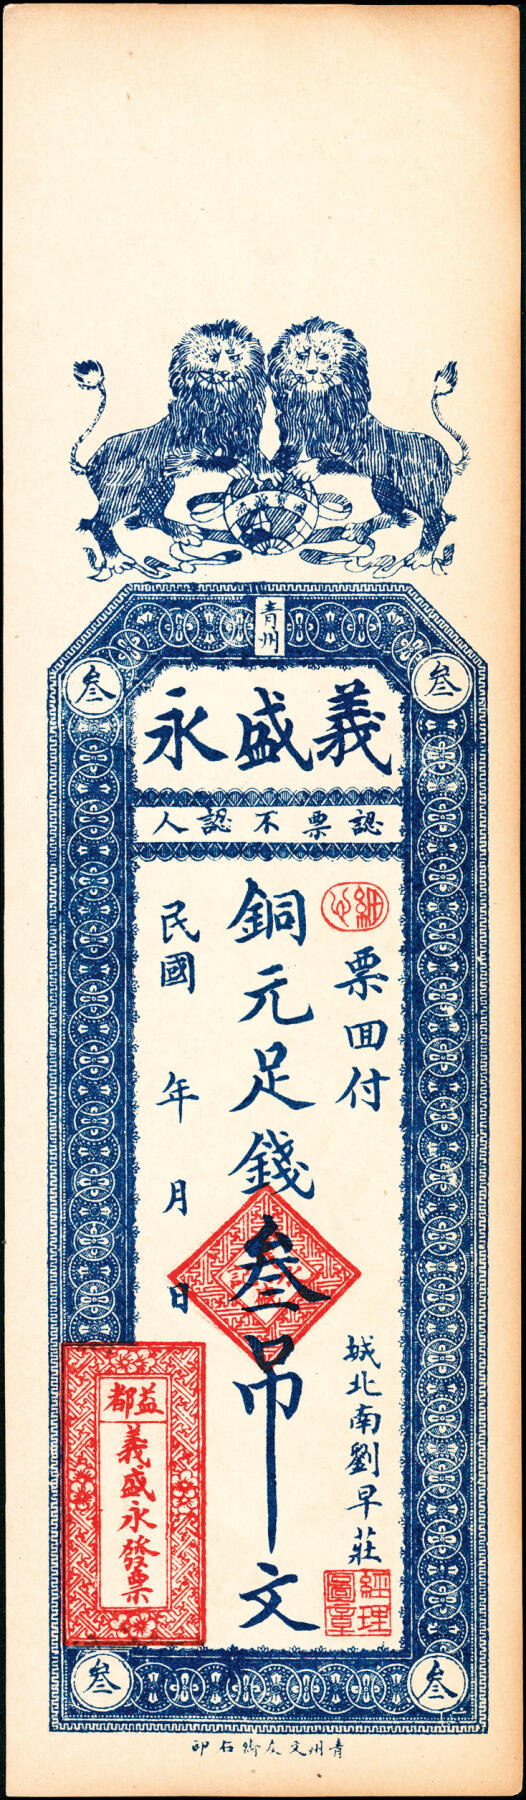 青州
叁
叁
義盛永
認票不認人
票囬付
城北南劉早莊
銅元足錢叁吊文
民國 年 月 日
細心
經理
圖章
益都
義盛永發票
叁
叁